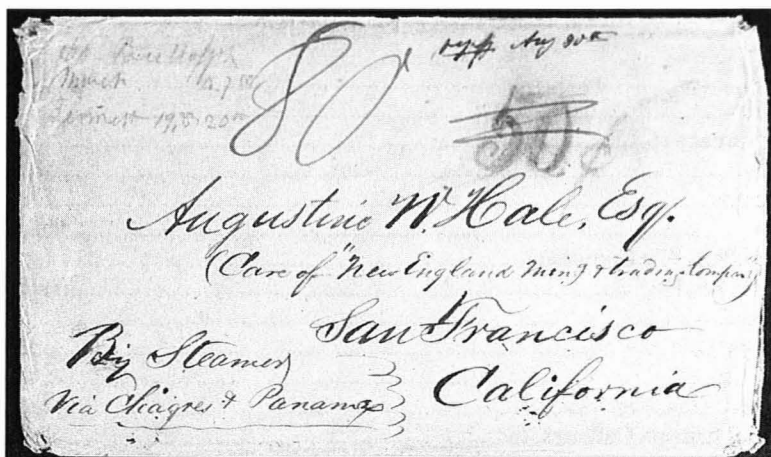 80
Aug 30th
50¢
Augustine W. Hale, Esq.
(Care of New England Ming & trading Company)
San Francisco
By Steamer
California
Via Chagres & Panama